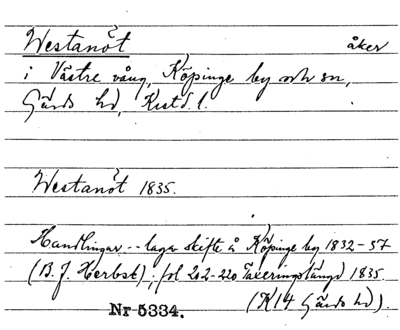 Westanöt åker
i Västre vång, Köpinge by och sn,
Gärds hd, Krist.l.
Westanöt 1835.
Handlingar -- laga skifte å Köpinge by 1832-37
(B. J. Herbst); fol 202-220 Taxeringslängd 1835.
(K14 Gärds hd).
Nr 5334.